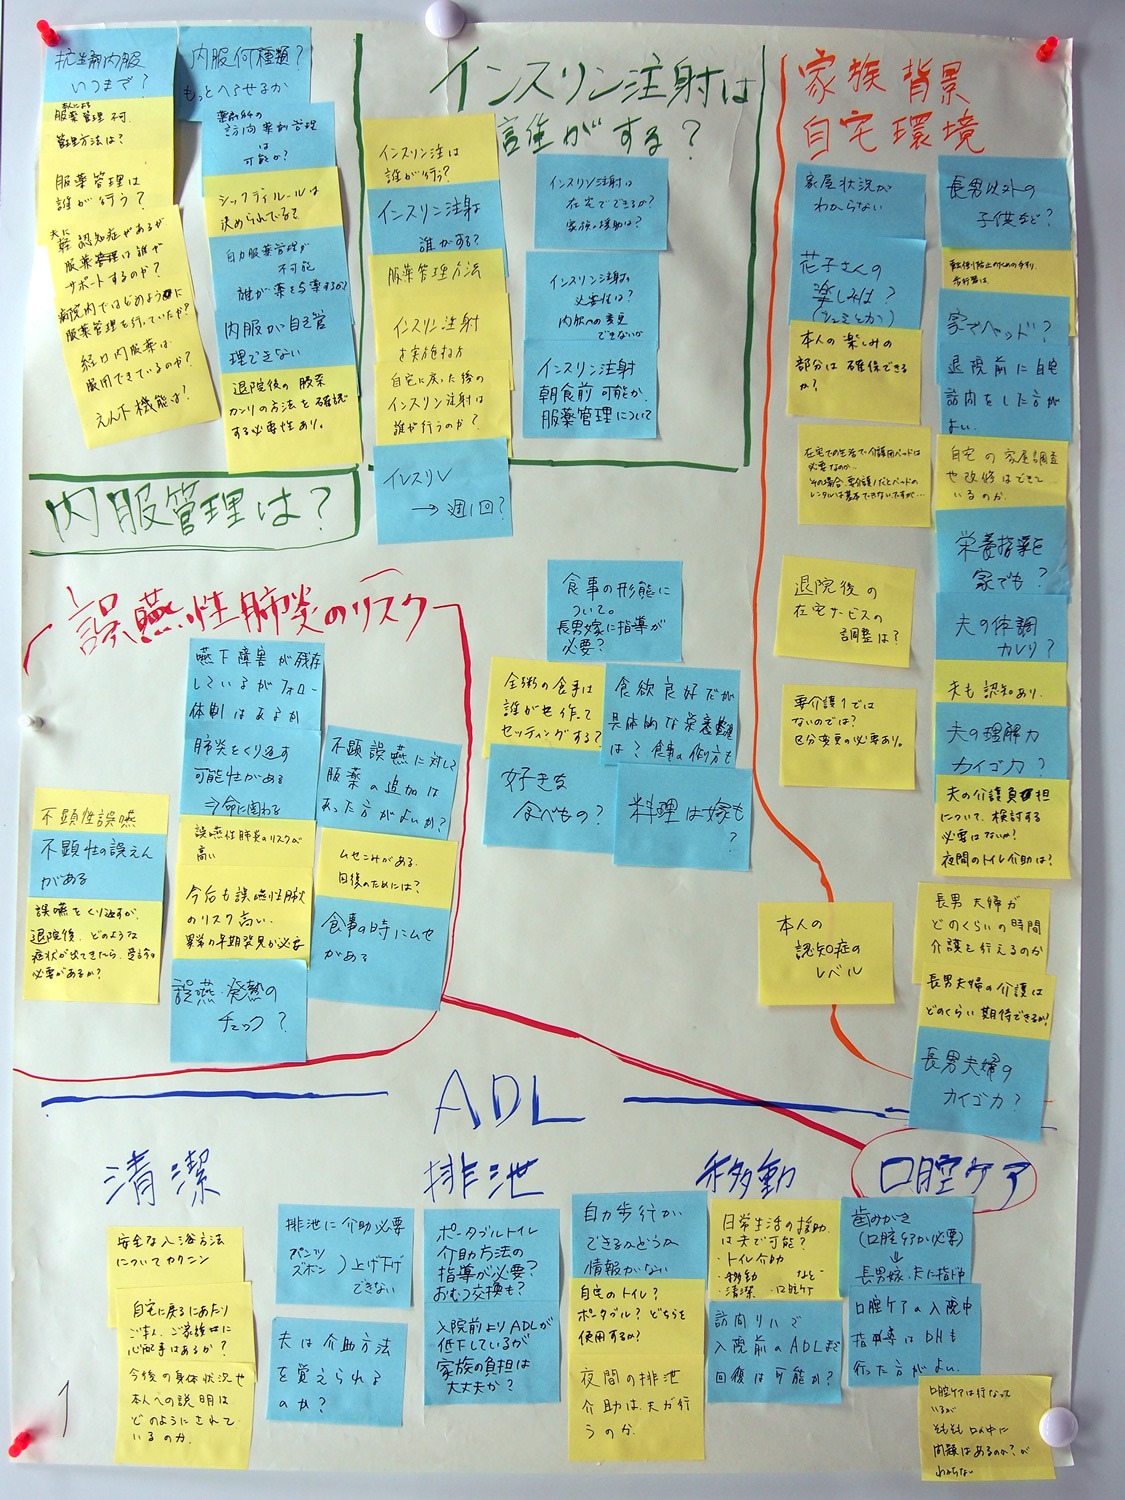 抗生剤内服
いつまで?
内服何種類?
もっとへらせるか
本人による
服薬管理不可.
管理方法は?
服薬管理は
誰が行う?
夫に
軽認知症があるが
服薬管理は誰が
サポートするのか?
病院内ではどのように
服薬管理を行っていたか?
経口内服薬は
服用できているのか?
えん下機能は?
薬剤師の
訪問薬剤管理
は
可能か?
シックデイルールは
決められている?
自力服薬管理が
不可能
誰が薬を与薬するか?
内服が自己管
理できない
退院後の服薬
カンリの方法を確認
する必要性あり。
内服管理は?
インスリン注射は
誰がする?
インスリン注は
誰が行う?
インスリン注射は
誰がする?
服薬管理方法
インスリン注射
を実施する方
自宅に戻った後の
インスリン注射は
誰が行うのか?
インスリン
→週1回?
インスリン注射は
在宅でできるか?
家族の援助は?
インスリン注射の
必要性は?
内服への変更
できないか
インスリン注射
朝食前可能か、
服薬管理について
家族背景
自宅環境
家屋状況が
わからない
花子さんの
楽しみは?
(シュミとか)
本人の楽しみの
部分は確保できる
か?
在宅での生活で介護用ベッドは
必要なのか…
その場合、要介護1だとベッドの
レンタルは基本できないですが…
退院後の
在宅サービスの
調整は?
要介護1では
ないのでは?
区分変更の必要あり。
本人の
認知症の
レベル
長男以外の
子供など?
転倒防止のための手すり
歩行器は
家でベッド?
退院前に自宅
訪問をした方が
よい.
自宅の家屋調査
や改修はできて
いるのか.
栄養指導を
家でも?
夫の体調
カレリ?
夫も認知あり.
夫の理解力
カイゴ力?
夫の介護負担
について、検討する
必要はないか?
夜間のトイレ介助は?
長男夫婦が
どのくらいの時間
介護を行えるのか
長男夫婦の介護は
どのくらい期待できるか?
長男夫婦の
カイゴ力?
誤嚥性肺炎のリスク
嚥下障害が残存
しているがフォロー
体制はあるか
肺炎をくり返す
可能性がある
⇒命に関わる
誤嚥性肺炎のリスクが
高い
今后も誤嚥性肺炎
のリスク高い.
異常の早期発見が必要
誤嚥・発熱の
チェック?
不顕誤嚥に対して
服薬の追加は
あった方がよいか?
ムセこみがある.
回復のためには?
食事の時にムセ
がある
不顕性誤嚥
不顕性の誤えん
がある
誤嚥をくり返すが、
退院後、どのような
症状が出てきたら、受診の
必要があるか?
食事の形態に
ついて。
長男嫁に指導が
必要?
全粥の食事は
誰がを作って
セッティングする?
食欲良好だが
具体的な栄養管理
は?食事の作り方も
好きな
食べもの?
料理は嫁も
?
ADL
清潔
排泄
移動
口腔ケア
安全な入浴方法
についてカクニン
自宅に戻るにあたり
ご本人、ご家族に
心配事はあるか?
今後の身体状況や
本人への説明は
どのようにされて
いるのか.
排泄に介助必要
パンツ
ズボン)上げ下げ
できない
夫は介助方法
を覚えられる
のか?
ポータブルトイレ
介助方法の
指導が必要?
おむつ交換も?
入院前よりADLが
低下しているが
家族の負担は
大丈夫か?
自力歩行が
できるかどうか
情報がない
自宅のトイレ?
ポータブル?どちらを
使用するか?
夜間の排泄
介助は夫が行
うのか.
日常生活の援助
は夫で可能?
・トイレ介助
・移動 など
・清潔 ・口腔ケア
訪問リハで
入院前のADLまで
回復は可能か?
歯みがき
(口腔ケアが必要)
↓
長男嫁・夫に指導
口腔ケアの入院中
指導等はDHも
行った方がよい.
口腔ケアは行なって
いるが
そもそも口の中に
問題はあるのか?が
わからない
1